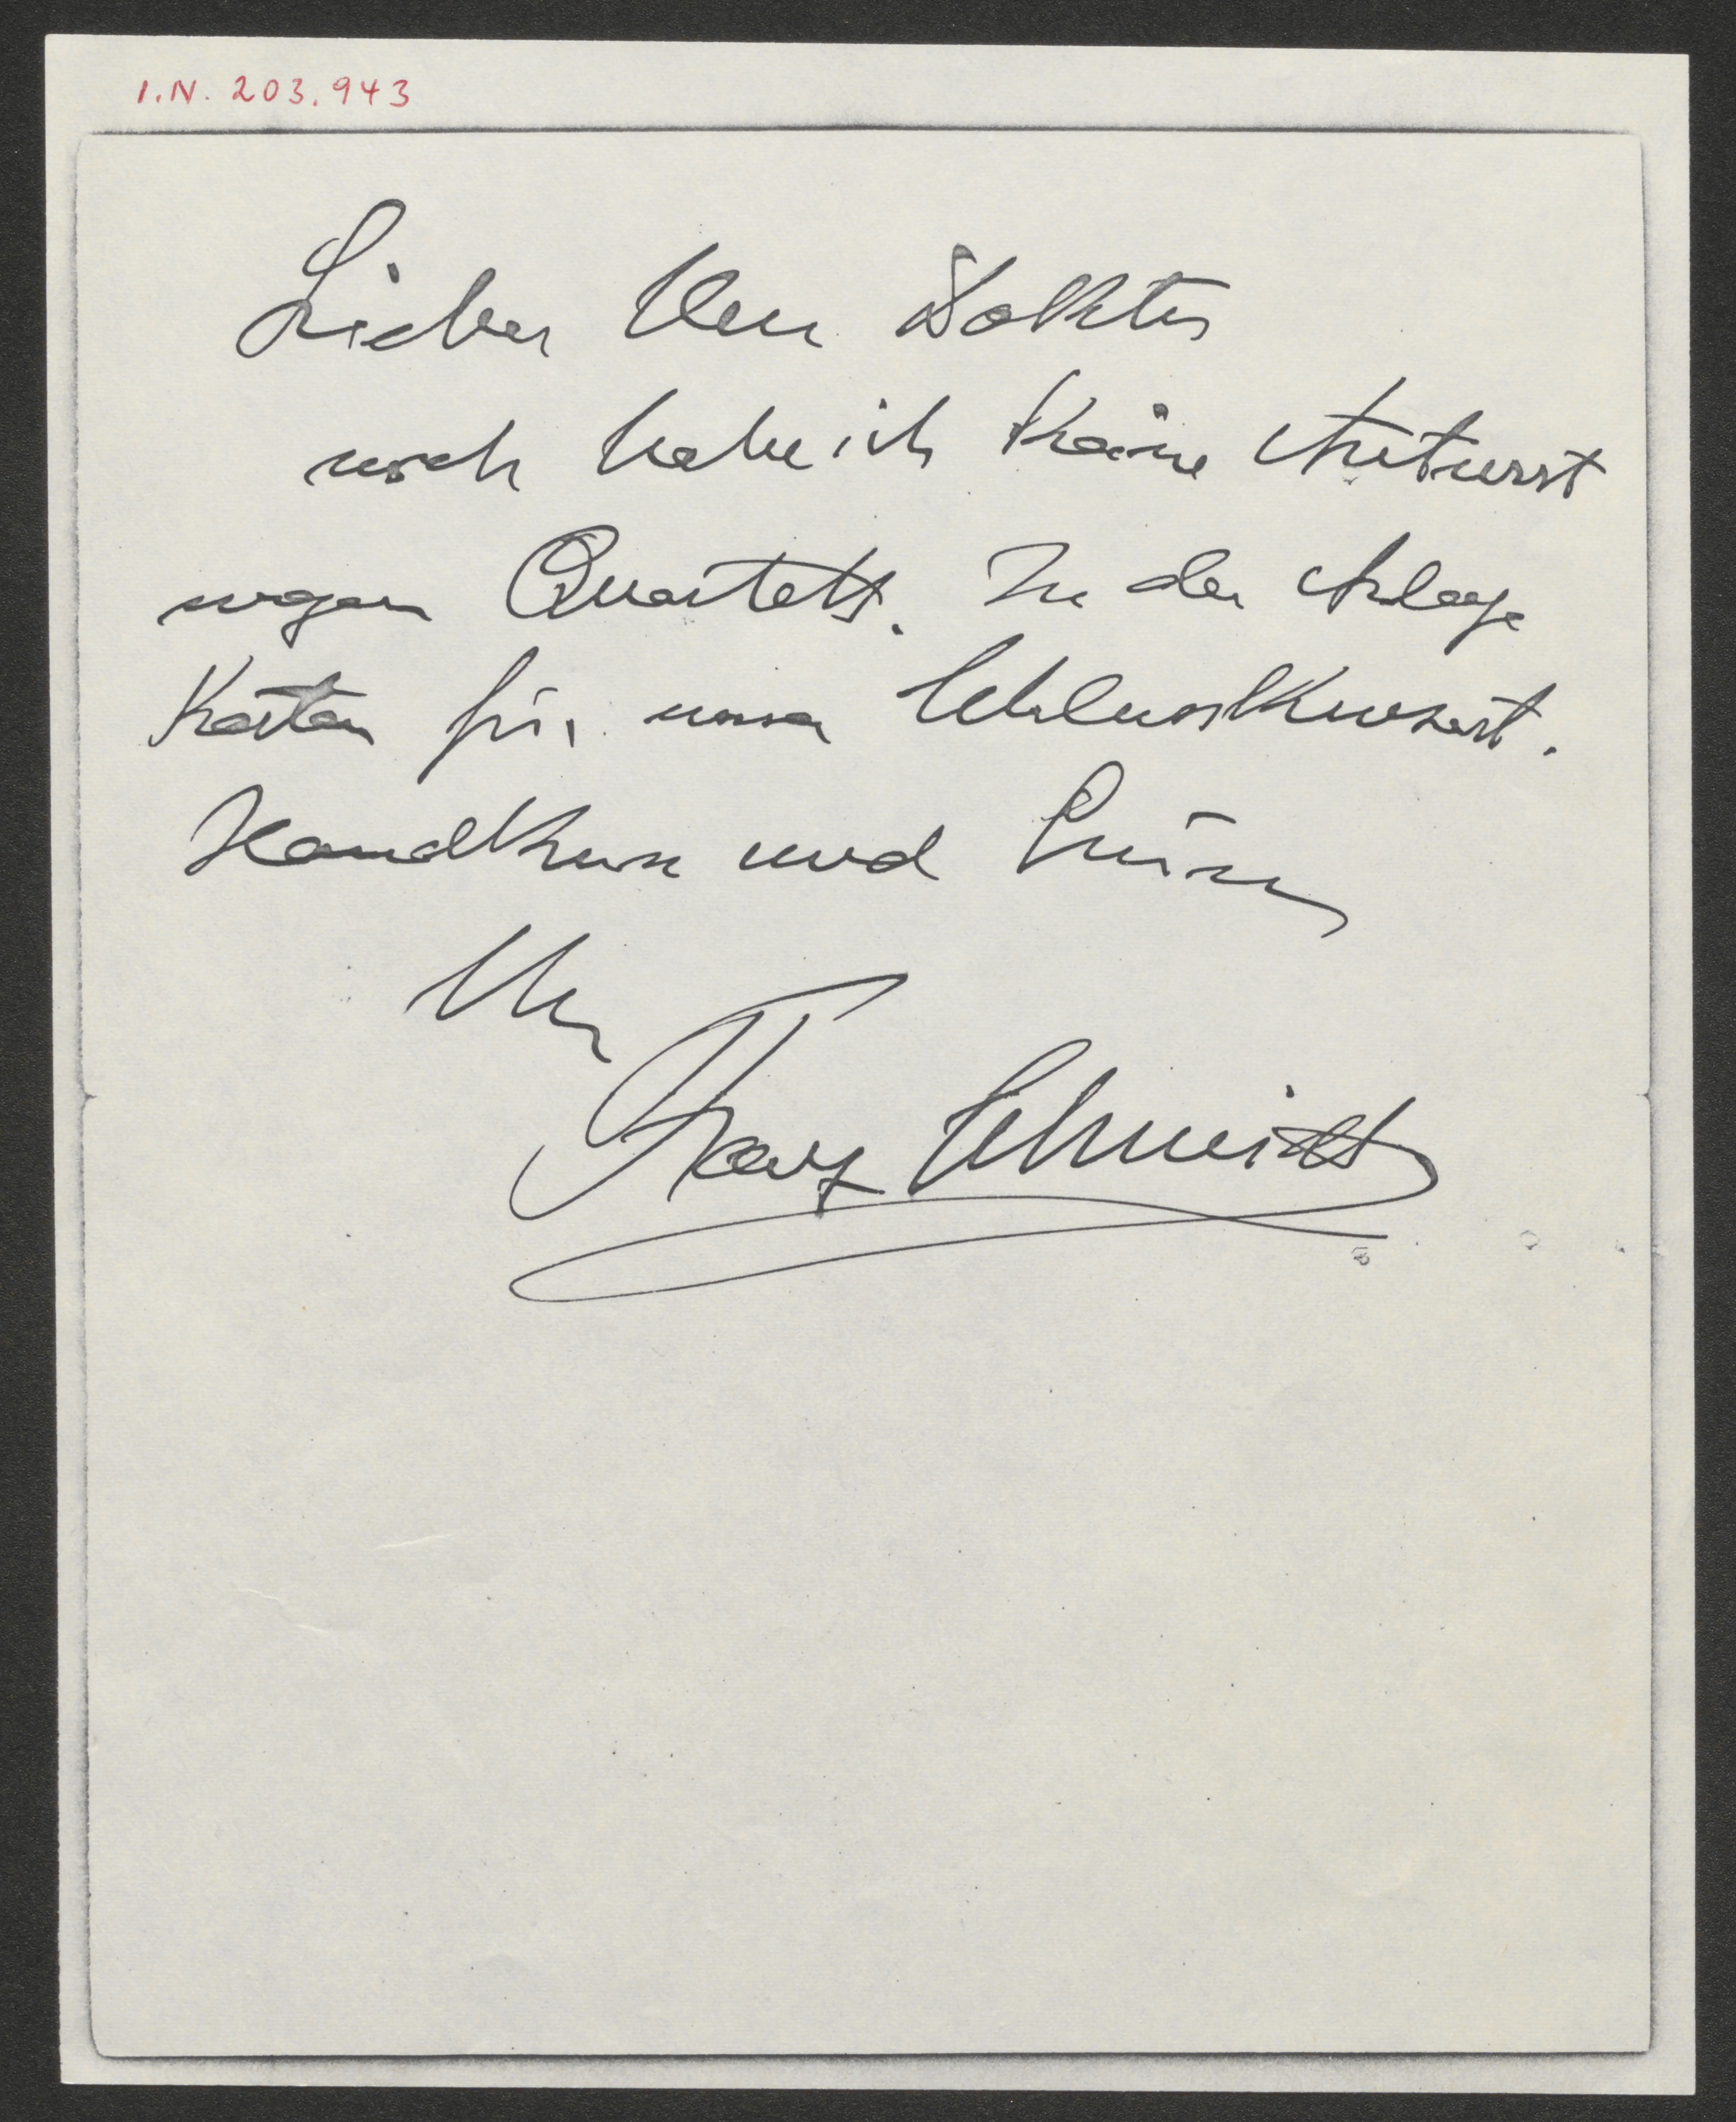 I.N. 203.943
Lieber Herr Doktor
noch habe ich keine Antwort
wegen Quartett. In der Anlage
Karten für unser Schlusskonzert.
Handkuss und Grüsse
Ihr
Franz Schmidt